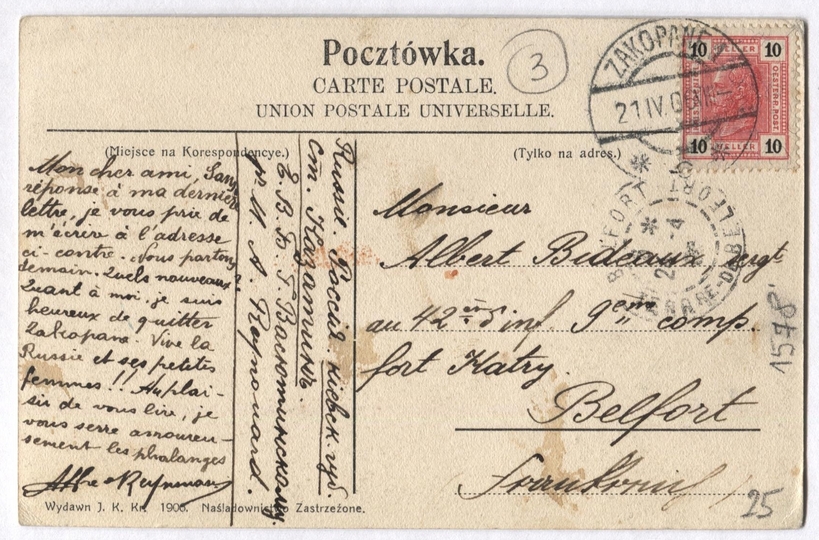 Pocztówka.
CARTE POSTALE.
UNION POSTALE UNIVERSELLE.
3
ZAKOPANE
21 IV.
10 HELLER 10
OESTERR. POST
10 HELLER 10
(Miejsce na Korespondencye.)
(Tylko na adres.)
Mon cher ami, Sans
réponse à ma dernière
lettre, je vous prie de
m'écrire à l'adresse
ci-contre. Nous partons
demain. Quels nouveaux
Quant à moi, je suis
heureux de quitter
Zakopane. Vive la
Russie et ses petites
femmes!! Au plai-
sir de vous lire, je
vous serre amoureu-
sement les phalanges
Russie. Россія. Кіевск. губ.
ст. Казатинъ.
Е. В. Б. Г. Васютинскому
для М. А. Рейнуард.
BELFORT
BELFORT
GARE
Monsieur
Albert Bideaux, sergt
au 42ème d'inf. 9em comp.
fort Hatry.
Belfort
1578
25
Wydawn J. K. Kr. 1906. Naśladownictwo Zastrzeżone.